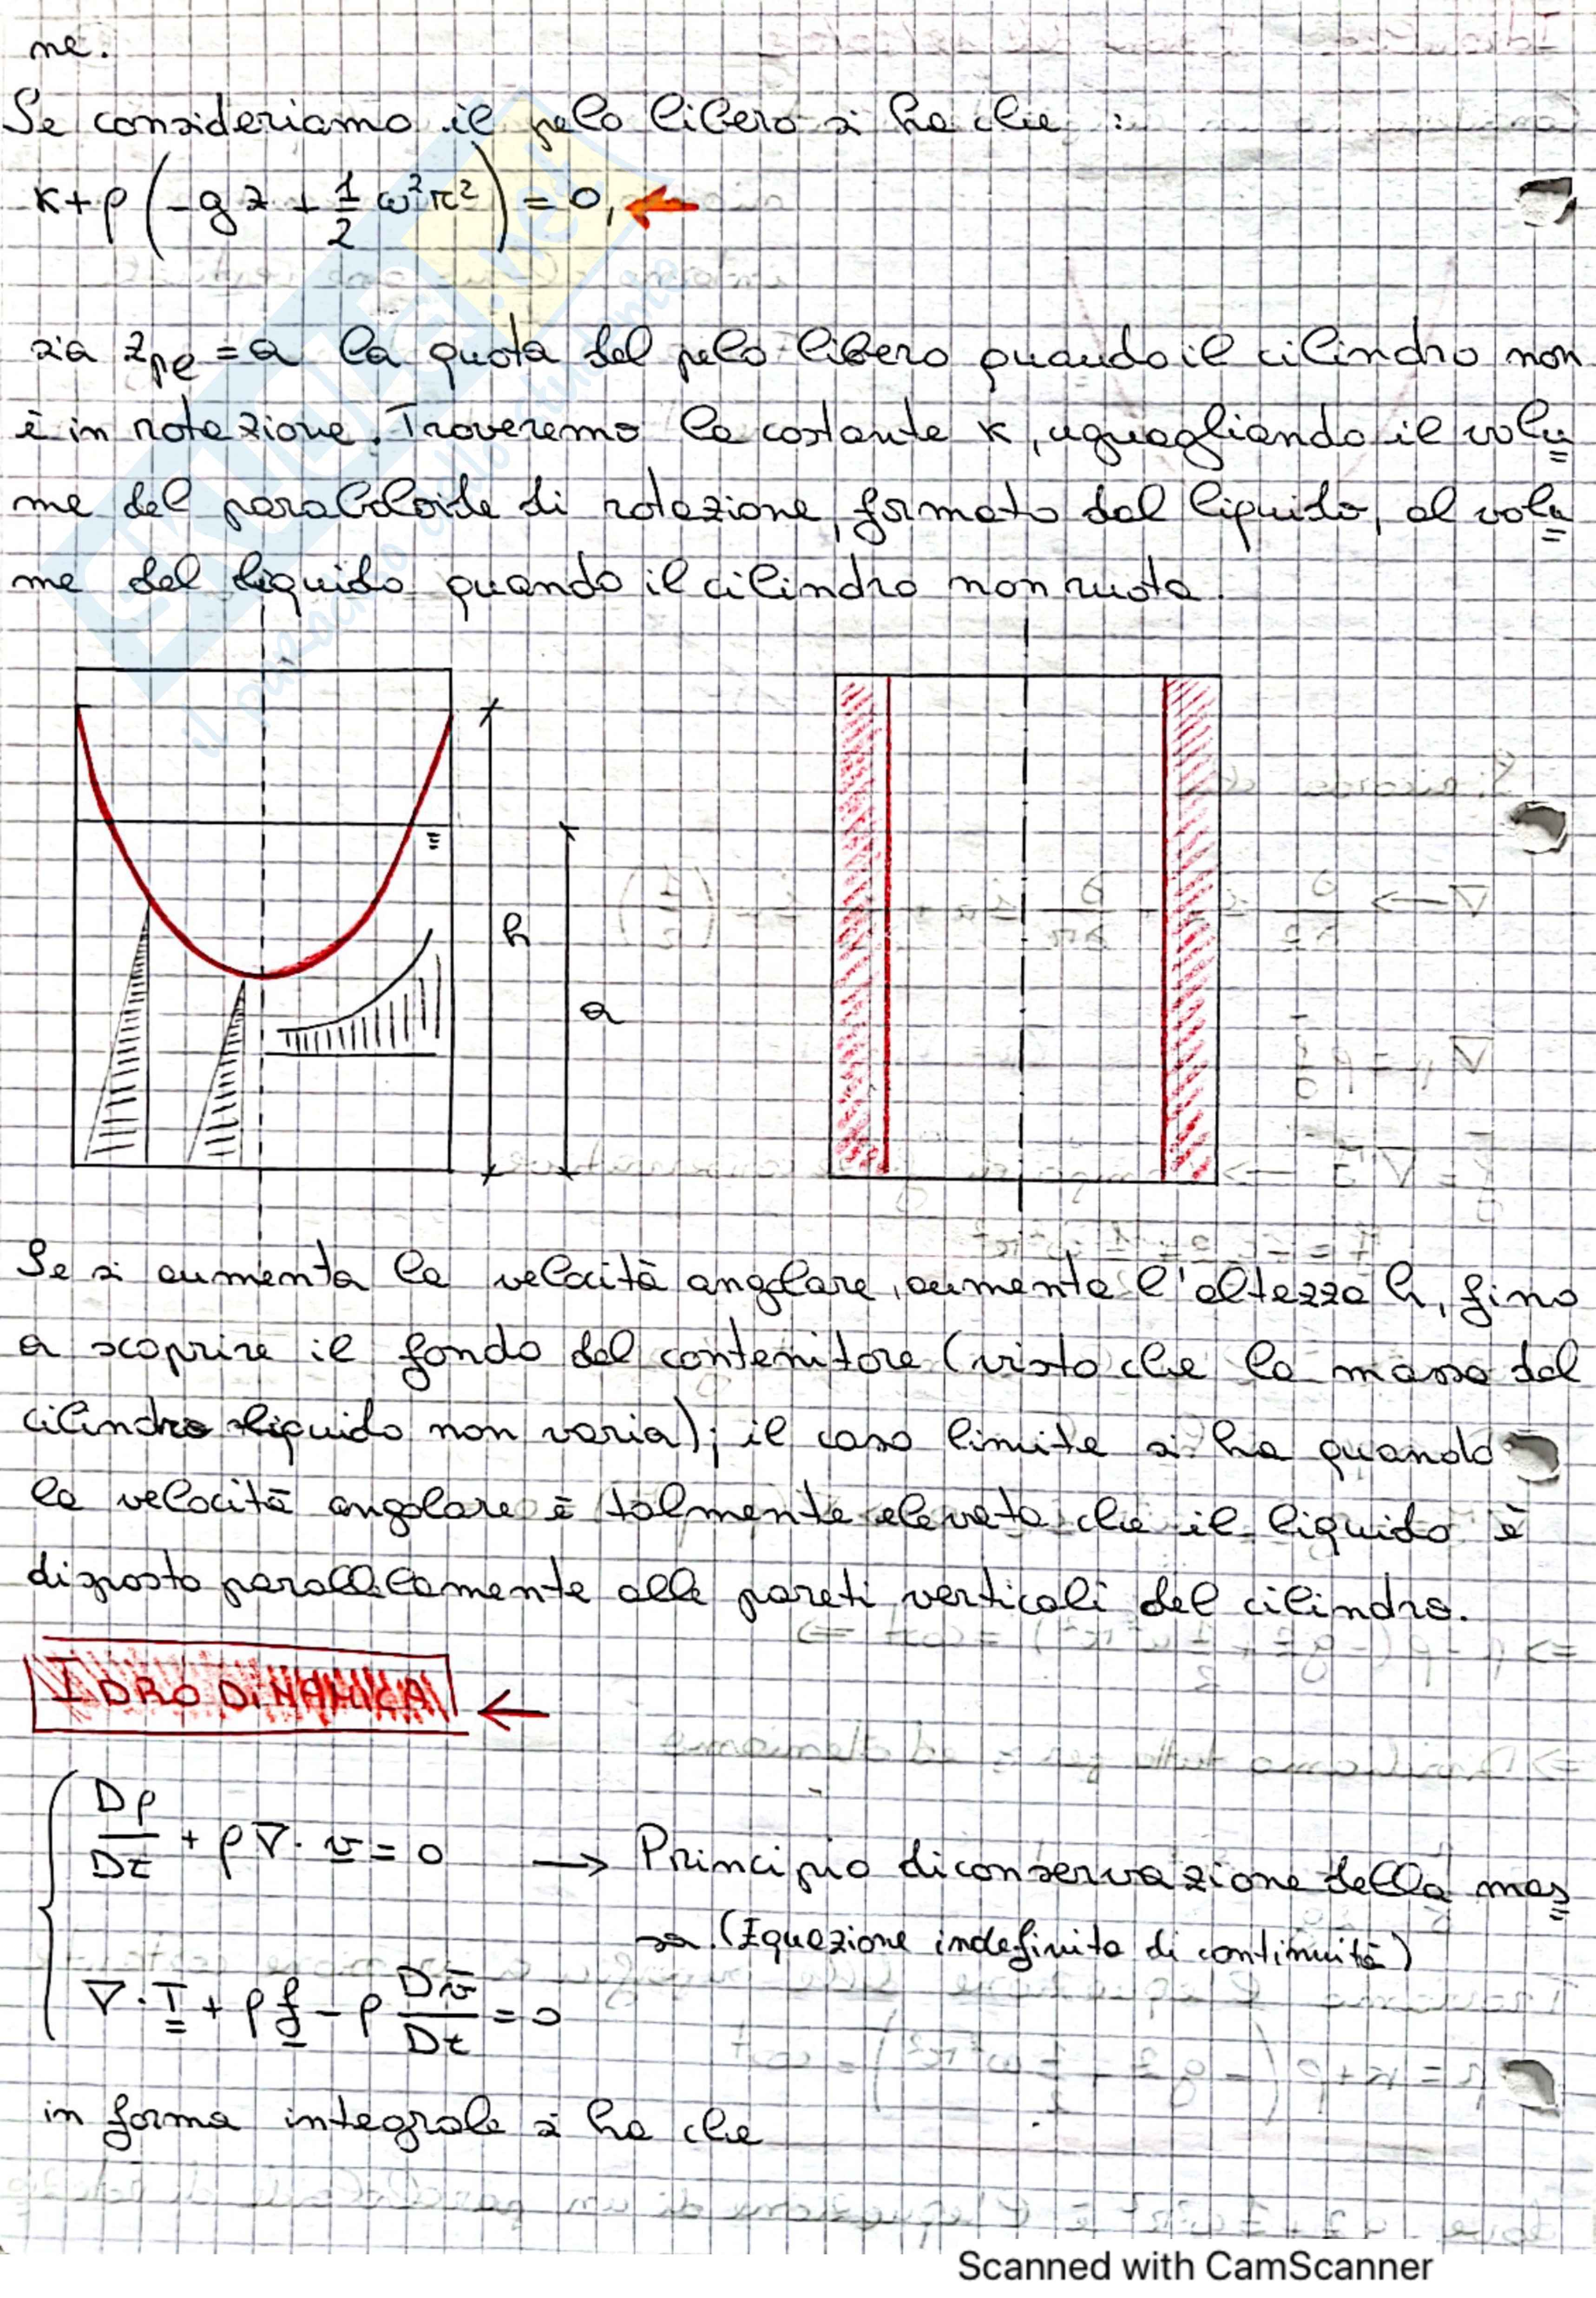 ne.
Se consideriamo il pelo libero si ha che :
K+ρ(-gz + 1/2 ω²r²) = 0,
sia z_pl = a la quota del pelo libero quando il cilindro non
è in rotazione. Troveremo la costante K, uguagliando il volu
me del paraboloide di rotazione, formato dal liquido, al volu
me del liquido quando il cilindro non ruota.
h
a
Se si aumenta la velocità angolare, aumenta l'altezza h, fino
a scoprire il fondo del contenitore (visto che la massa del
cilindro liquido non varia); il caso limite si ha quando
la velocità angolare è talmente elevata che il liquido è
disposto parallelamente alle pareti verticali del cilindro.
IDRODINAMICA
Dρ/Dt + ρ∇·v = 0 → Principio di conservazione della mas
sa. (Equazione indefinita di continuità)
∇·T + ρf - ρ Dv/Dt = 0
in forma integrale si ha che
Scanned with CamScanner